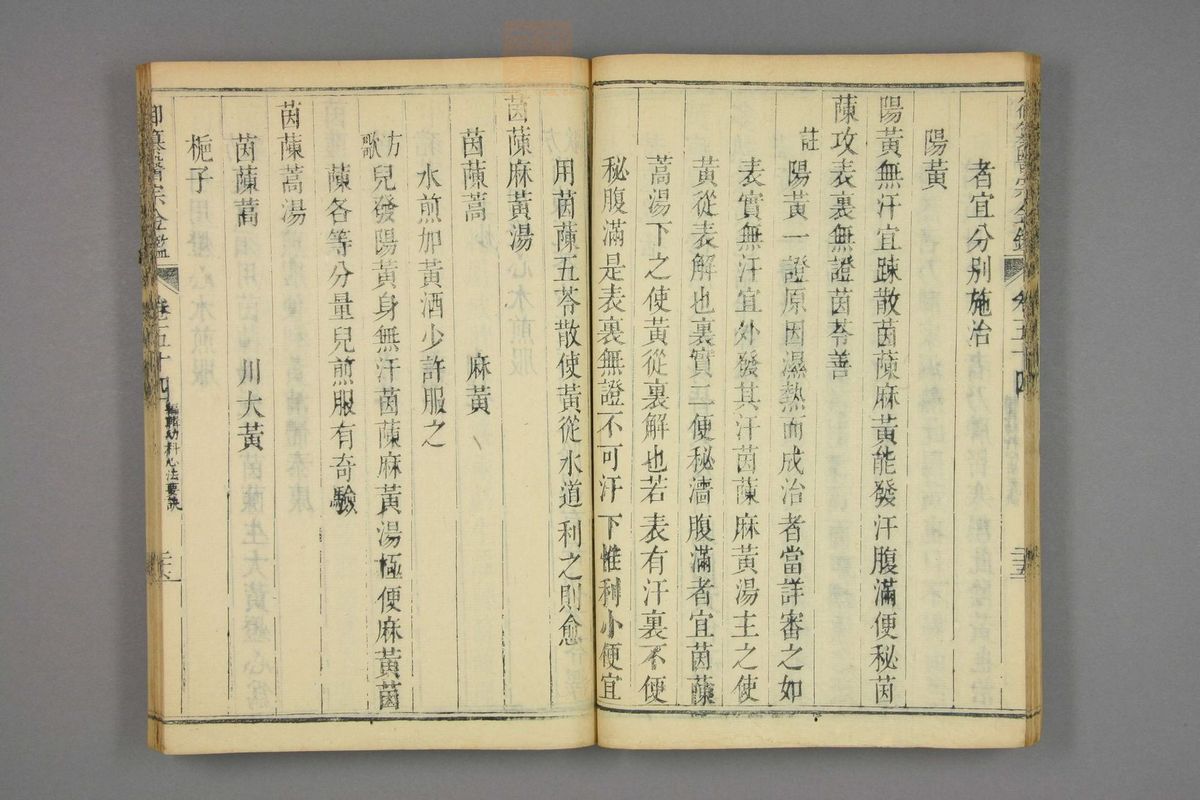 者宜分别施治
陽黃
陽黃無汗宜疎散茵蔯麻黃能發汗腹滿便秘茵
蔯攻表裏無證茵苓善
註
陽黃一證原因濕熱而成治者當詳審之如
表實無汗宜外發其汗茵蔯麻黃湯主之使
黃從表解也裏實二便秘濇腹滿者宜茵蔯
蒿湯下之使黃從裏解也若表有汗裏不便
秘腹滿是表裏無證不可汗下惟利小便宜
用茵蔯五苓散使黃從水道利之則愈
茵蔯麻黃湯
茵蔯蒿 麻黃
水煎加黃酒少許服之
方歌
兒發陽黃身無汗茵蔯麻黃湯極便麻黃茵
蔯各等分量兒煎服有奇驗
茵蔯蒿湯
茵蔯蒿 川大黃
梔子
御纂醫宗金鑑 卷五十四 編輯幼科心法要訣